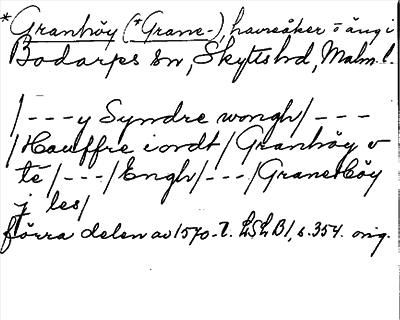 *Granhöy (*Grane-), havreåker o äng i
Bodarps sn, Skytts hd, Malm. l.
/---y Syndre wongh/---
/Hauffre iordt/Granhöy v
te/---/Engh/---/Grane Höy
j les/
förra delen av 1570-t. LSLB1, s. 354. orig.